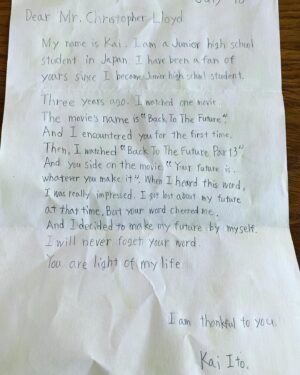 July 18
Dear Mr. Christopher Lloyd
My name is Kai. I am a Junior high school
student in Japan. I have been a fan of
yours since I become Junior high school student.
Three years ago. I watched one movie.
The movie's name is "Back To The Future".
And I encountered you for the first time.
Then, I watched "Back To The Future Part 3"
And you side on the movie "Your future is
whatever you make it". When I heard this word,
I was really impressed. I got lost about my future
at that time. But your word cheered me.
And I decided to make my future by myself.
I will never foget your word.
You are light of my life.
I am thankful to you.
Kai Ito.